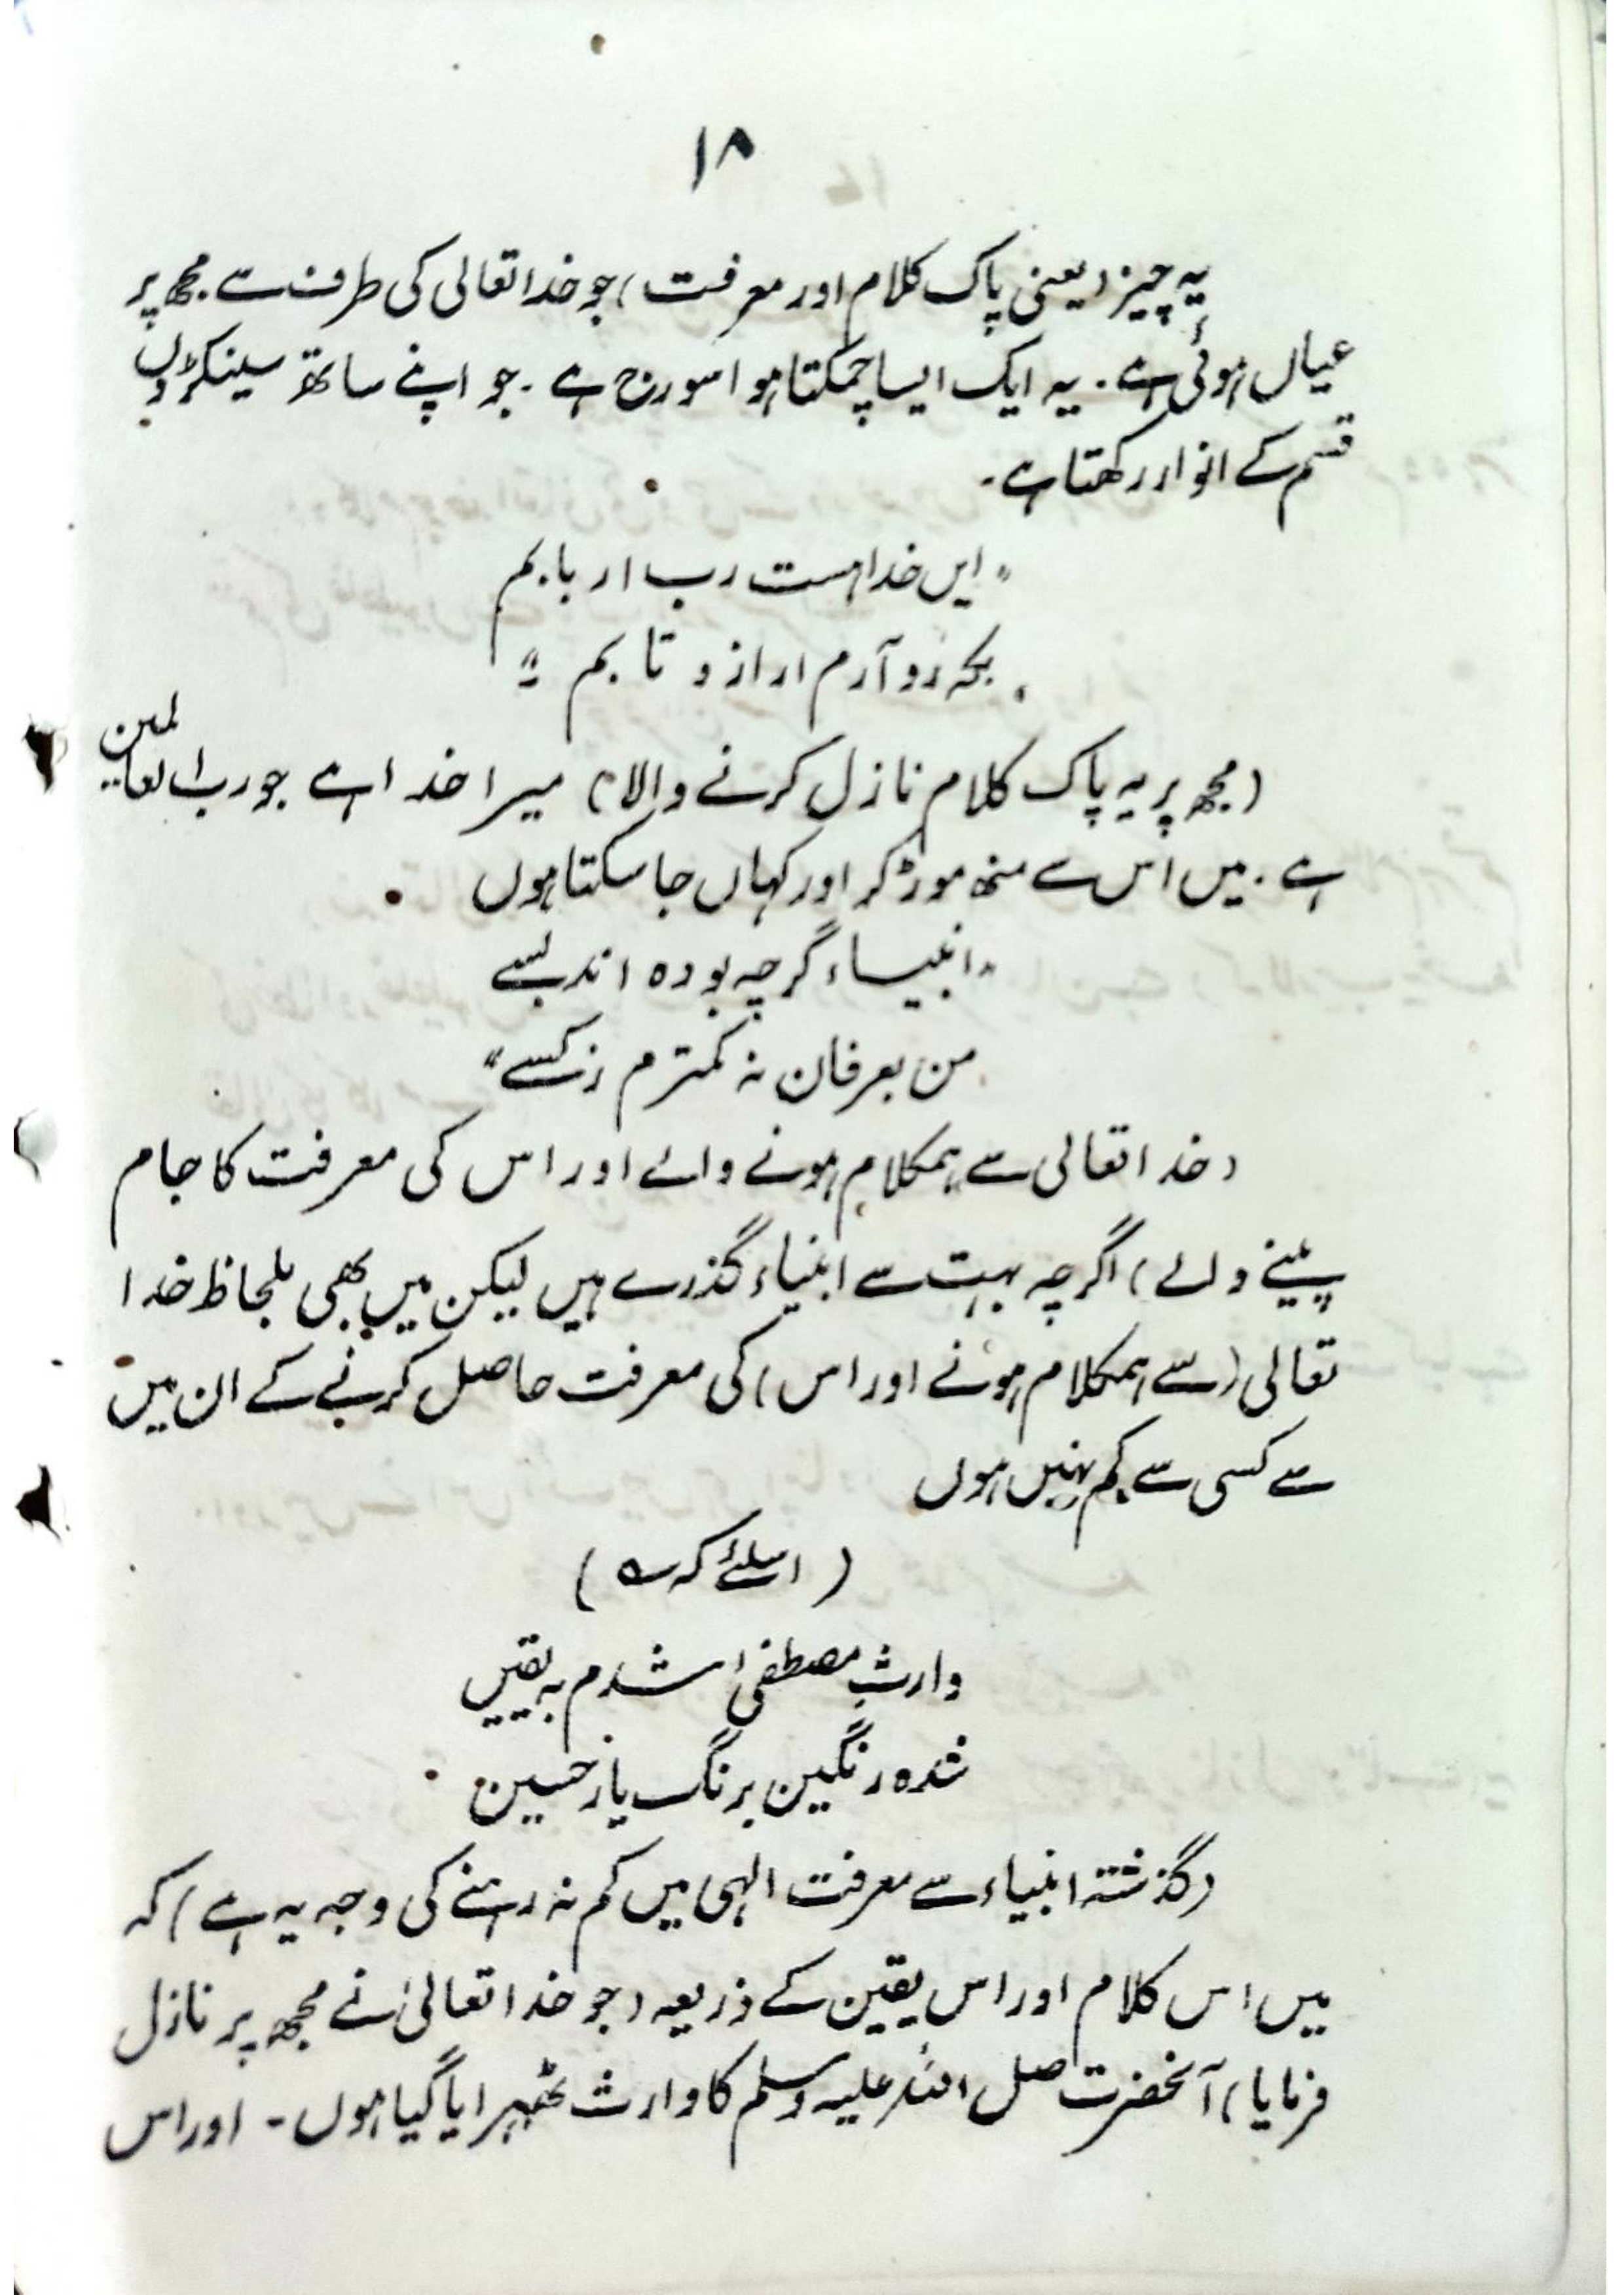 ۱۸
یہ چیز (یعنی پاک کلام اور معرفت) جو خدا تعالی کی طرف سے مجھ پر
عیاں ہوئی ہے۔ یہ ایک ایسا چمکتا ہوا سورج ہے۔ جو اپنے ساتھ سینکڑوں
قسم کے انوار رکھتا ہے۔
"ایں خدا ہست رب اربابم
بکہ رو آرم ار ازو تابم"
(مجھ پر یہ پاک کلام نازل کرنے والا) میرا خدا ہے جو رب العالمین
ہے۔ میں اُس سے منھ موڑ کر اور کہاں جا سکتا ہوں
"انبیاء گرچہ بودہ اند بسے
من بعرفان نہ کمترم زکسے"
(خدا تعالی سے ہمکلام ہونے والے اور اس کی معرفت کا جام
پینے والے) اگرچہ بہت سے انبیاء گذرے ہیں لیکن میں بھی بلحاظ خدا
تعالی (سے ہمکلام ہونے اور اس) کی معرفت حاصل کرنے کے ان میں
سے کسی سے کم نہیں ہوں
(اسلئے کہ ؎)
وارثِ مصطفیٰ شدم بہ یقیں
شدہ رنگین برنگ یار حسین
(گذشتہ انبیاء سے معرفت الہی میں کم نہ رہنے کی وجہ یہ ہے) کہ
میں اس کلام اور اس یقین کے ذریعہ (جو خدا تعالیٰ نے مجھ پر نازل
فرمایا) آنحضرت صلی اللہ علیہ وسلم کا وارث ٹھہرایا گیا ہوں۔ اور اس